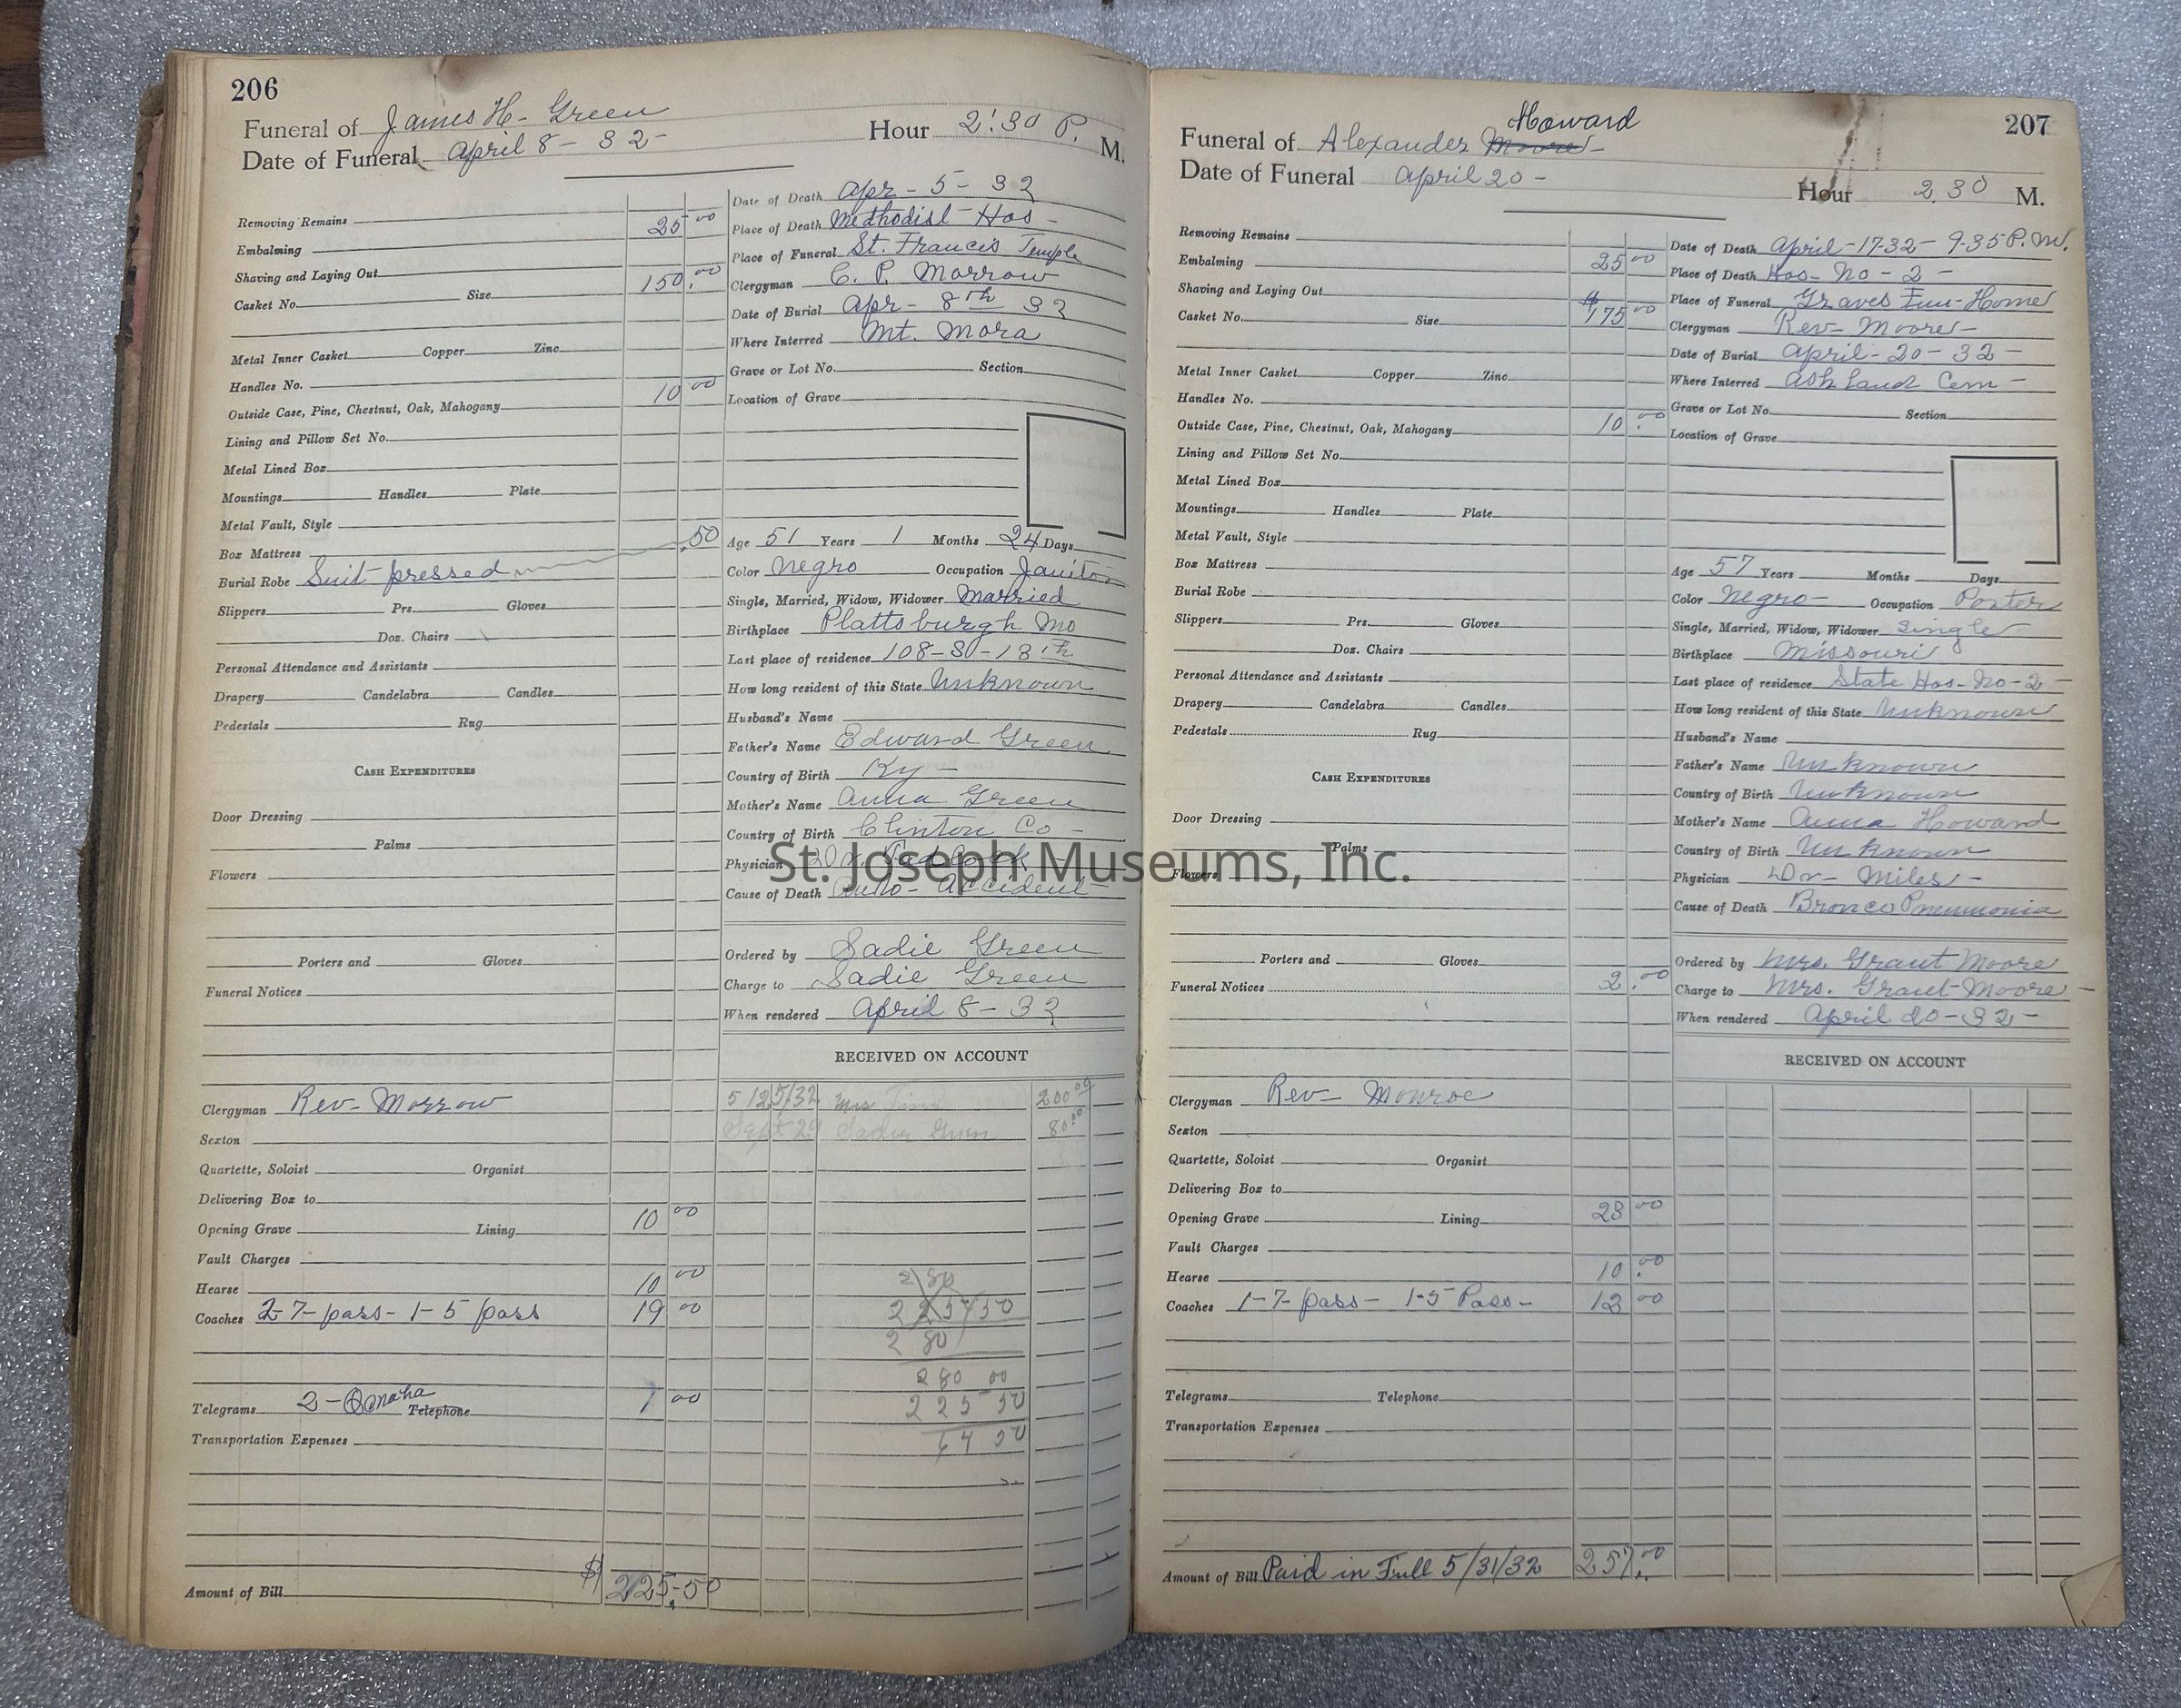 206
Funeral of James H- Green
Hour 2:30 P. M.
Date of Funeral April 8-32-
Removing Remains
Embalming 25 00
Shaving and Laying Out
Casket No. Size 150.00
Metal Inner Casket Copper Zinc
Handles No.
Outside Case, Pine, Chestnut, Oak, Mahogany 10 00
Lining and Pillow Set No.
Metal Lined Box
Mountings Handles Plate
Metal Vault, Style
Box Mattress
Burial Robe Suit pressed .50
Slippers Prs. Gloves
Doz. Chairs
Personal Attendance and Assistants
Drapery Candelabra Candles
Pedestals Rug
CASH EXPENDITURES
Door Dressing
Palms
Flowers
Porters and Gloves
Funeral Notices
Clergyman Rev- Morrow
Sexton
Quartette, Soloist Organist
Delivering Box to
Opening Grave Lining 10 00
Vault Charges
Hearse 10 00
Coaches 2-7-pass- 1-5 pass 19 00
Telegrams 2-Omaha Telephone 1 00
Transportation Expenses
Amount of Bill $ 225.50
Date of Death Apr-5-32
Place of Death Methodist Hos-
Place of Funeral St. Francis Temple
Clergyman C. P. Morrow
Date of Burial Apr-8th 32
Where Interred Mt. Mora
Grave or Lot No. Section
Location of Grave
Age 51 Years 1 Months 24 Days
Color Negro Occupation Janitor
Single, Married, Widow, Widower Married
Birthplace Plattsburgh Mo
Last place of residence 108-So-13th
How long resident of this State Unknown
Husband's Name
Father's Name Edward Green
Country of Birth Ky-
Mother's Name Anna Green
Country of Birth Clinton Co-
Physician Dr.
Cause of Death Auto-Accident
Ordered by Sadie Green
Charge to Sadie Green
When rendered April 8-32
RECEIVED ON ACCOUNT
5 125/32 Mrs 200 00
Sept 29 Sadie Green 80 00
2 80
2 25 50
2 80
280 00
225 50
64 50
207
Funeral of Alexander Moore- Howard
Date of Funeral April 20-
Hour 2.30 M.
Removing Remains
Embalming 25 00
Shaving and Laying Out
Casket No. Size $175 00
Metal Inner Casket Copper Zinc
Handles No.
Outside Case, Pine, Chestnut, Oak, Mahogany 10.00
Lining and Pillow Set No.
Metal Lined Box
Mountings Handles Plate
Metal Vault, Style
Box Mattress
Burial Robe
Slippers Prs. Gloves
Doz. Chairs
Personal Attendance and Assistants
Drapery Candelabra Candles
Pedestals Rug
CASH EXPENDITURES
Door Dressing
Palms
Flowers
Porters and Gloves
Funeral Notices 2.00
Clergyman Rev- Monroe
Sexton
Quartette, Soloist Organist
Delivering Box to
Opening Grave Lining 23 00
Vault Charges
Hearse 10.00
Coaches 1-7-pass- 1-5 Pass- 12 00
Telegrams Telephone
Transportation Expenses
Amount of Bill Paid in Full 5/31/32 257.00
Date of Death April-17-32-9-35 P.M.
Place of Death Hos-No-2-
Place of Funeral Graves Fun-Home
Clergyman Rev- Moore-
Date of Burial April-20-32-
Where Interred Ashland Cem-
Grave or Lot No. Section
Location of Grave
Age 57 Years Months Days
Color Negro- Occupation Porter
Single, Married, Widow, Widower Single
Birthplace Missouri
Last place of residence State Hos-No-2-
How long resident of this State Unknown
Husband's Name
Father's Name Unknown
Country of Birth Unknown
Mother's Name Anna Howard
Country of Birth Unknown
Physician Dr- Miles-
Cause of Death Bronco Pneumonia
Ordered by Mrs. Grant Moore
Charge to Mrs. Grant Moore-
When rendered April 20-32-
RECEIVED ON ACCOUNT
St. Joseph Museums, Inc.